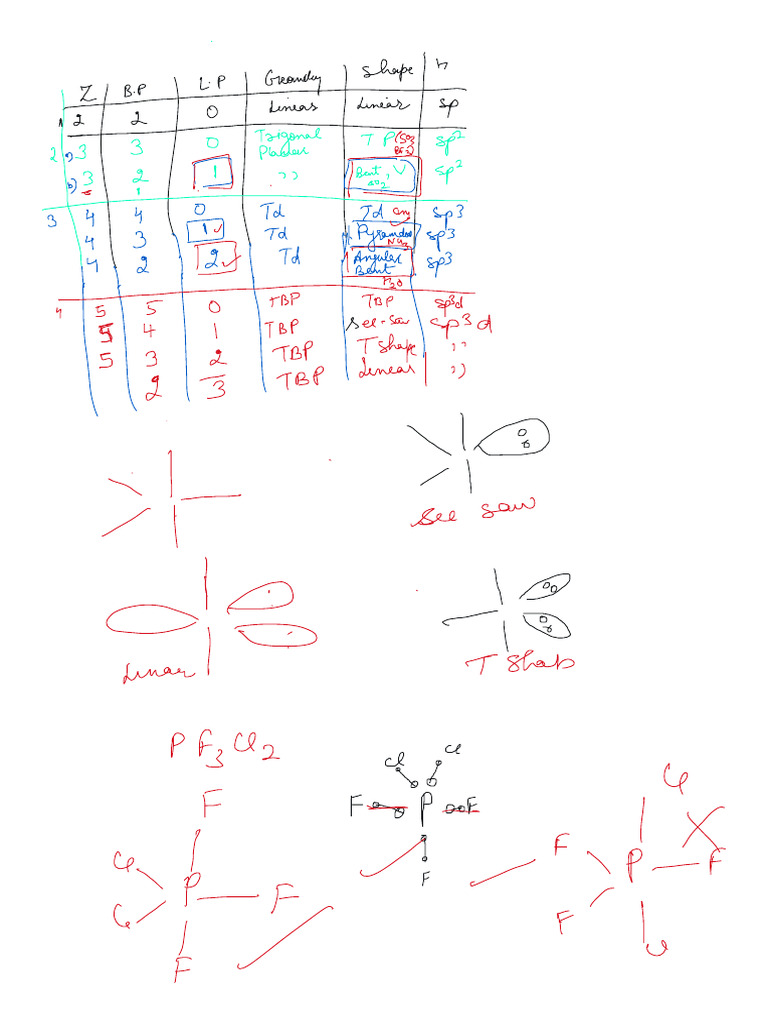 Z B.P L.P Geometry Shape h
1) 2 2 0 Linear Linear sp
2 a) 3 3 0 Trigonal Planar T P (SO3 BF3) sp2
b) 3 2 1 ,, Bent, V SO2 sp2
3 4 4 0 Td Td CH4 sp3
4 3 1 Td Pyramidal NH3 sp3
4 2 2 Td Angular Bent H2O sp3
4 5 5 0 TBP TBP sp3d
5 4 1 TBP See-Saw sp3d
5 3 2 TBP T Shape ,,
2 3 TBP Linear ,,
See Saw
Linear
T Shab
PF3Cl2
F
Cl
Cl
P F
F
Cl Cl
F P F
F
Cl
F P F
F
Cl